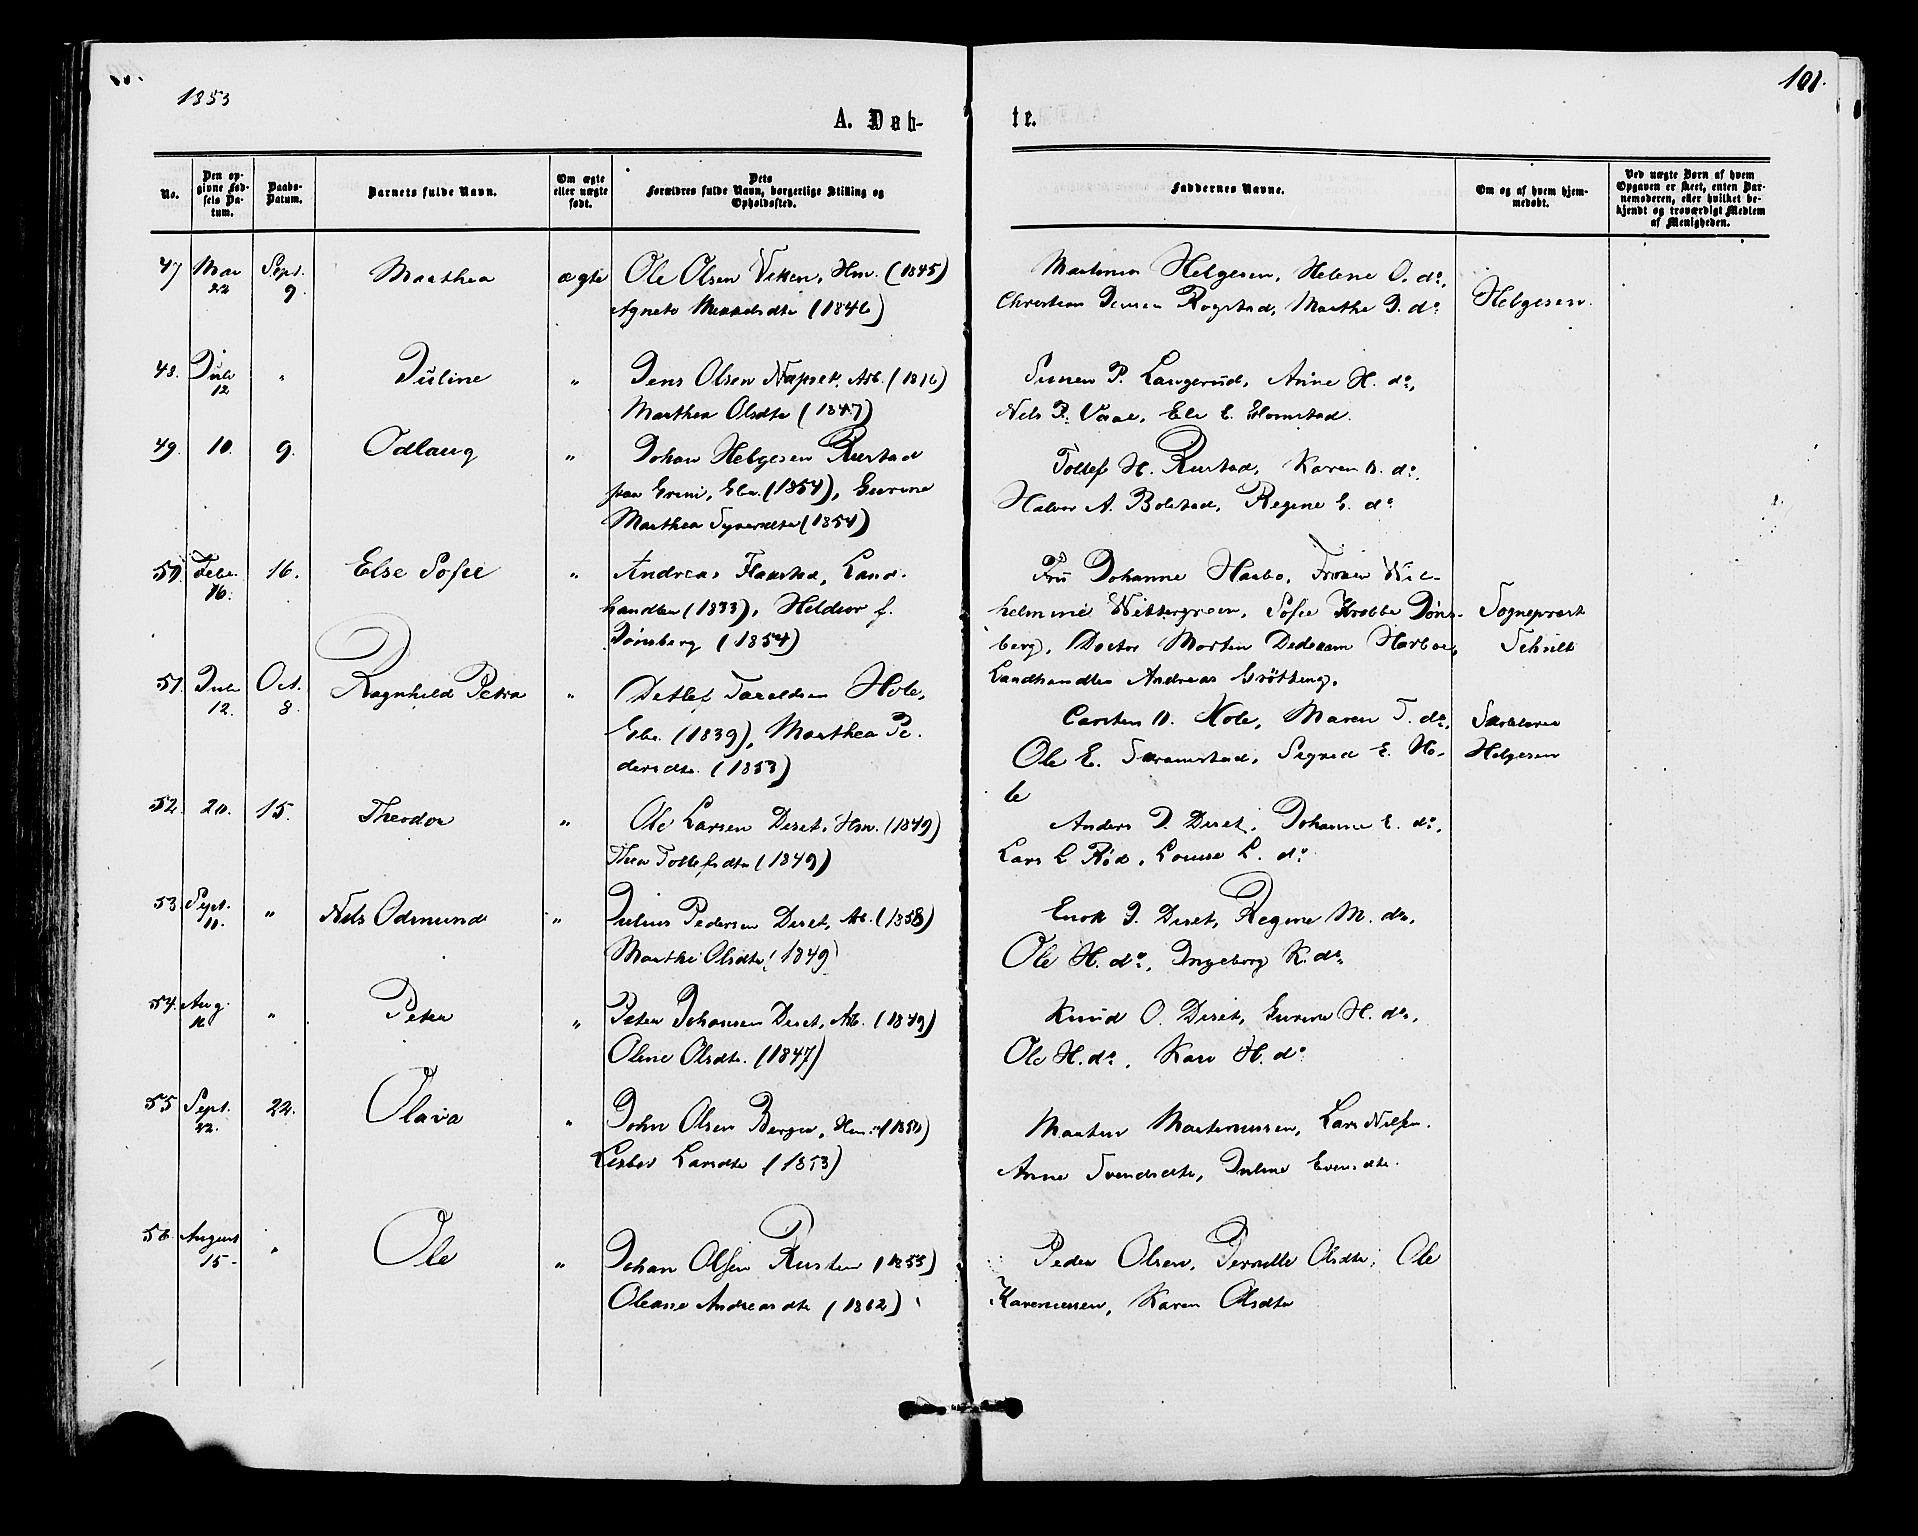 1853
101.
A. Døb-
te.
No.
Den op-
givne Fød-
sels Da-
tum.
Daabs-
Datum.
Barnets fulde Navn.
Om ægte
eller uægte
født.
Dets
Forældres fulde Navn, borgerlige Stilling og
Opholdssted.
Faddernes Navne.
Om og af hvem hjem-
medøbt.
Ved uægte Børn af hvem
Opgaven er skeet, enten Bar-
nemoderen, eller hvilket be-
kjendt og troværdigt Medlem
af Menigheden.
47 Mai 22 Sept. 9. Marthea ægte Ole Olsen Hm. (1845)
Agnete (1846)
Helgesen, Helene O. do,
Christian Jensen Rogstad, Marthe J. do
Helgesen
48. Juli 12 " Juline " Jens Olsen Arb. (1816)
Marthea Olsdtr (1847)
P. Langerud, Anne H. do,
Nils P. E. Homstad.
49. 10. 9. Odlaug " Johan Helgesen Rustad
(1854), Gurine
Marthea Syversdtr (1854)
Tollef H. Rustad, Karen do.
Halvor A. Bolstad, Regine E. do
50. Febr. 16. 16. Else Sofie " Andreas Flaastad, Land-
handler (1833), Heldior f.
Jønsberg (1854)
Fru Johanne Harbo, Frøken Wil-
helmine Sofie Krabbe Jøns-
berg, Doctor Morten Harboe,
Landhandler Andreas Grøtting.
Sogneprest
Schilt
51. Juli 12. Oct. 8. Ragnhild Petra " Detlef Taraldsen Hole,
(1839), Marthea Pe-
dersdtr. (1853)
Carsten D. Hole, Maren T. do,
Ole E. Sigrid E. Ho-
le
Helgesen
52. 20. 15. Theodor " Ole Larsen Diset, Hm. (1849)
Thea Tollefsdtr (1849)
Anders J. Diset, Johanne E. do,
Lars L. Rød, Louise L. do
53. Sept. 11. " Nils Odmund " Julius Pedersen Diset, Arb. (1858)
Marthe Olsdtr (1849)
Enok J. Diset, Regine M. do,
Ole H. do, Ingeborg K. do,
54. Aug. " Peter " Peter Johansen Diset, Arb. (1849)
Oline Olsdtr. (1847)
Knud O. Diset, Gurine H. do,
Ole H. do, Kari H. do
55 Sept. 22. 22. Olava " John Olsen Berger, Hm. (1850)
Lisbet Larsdtr (1853)
Martin Martinussen, Lars Nilsen.
Anne Svendsdtr, Juline Evensdtr.
56. August 15. " Ole " Johan Olsen Rusten (1855)
Oleane Andreasdtr (1862)
Peder Olsen, Pernille Olsdtr, Ole
Karenussen, Karen Olsdtr